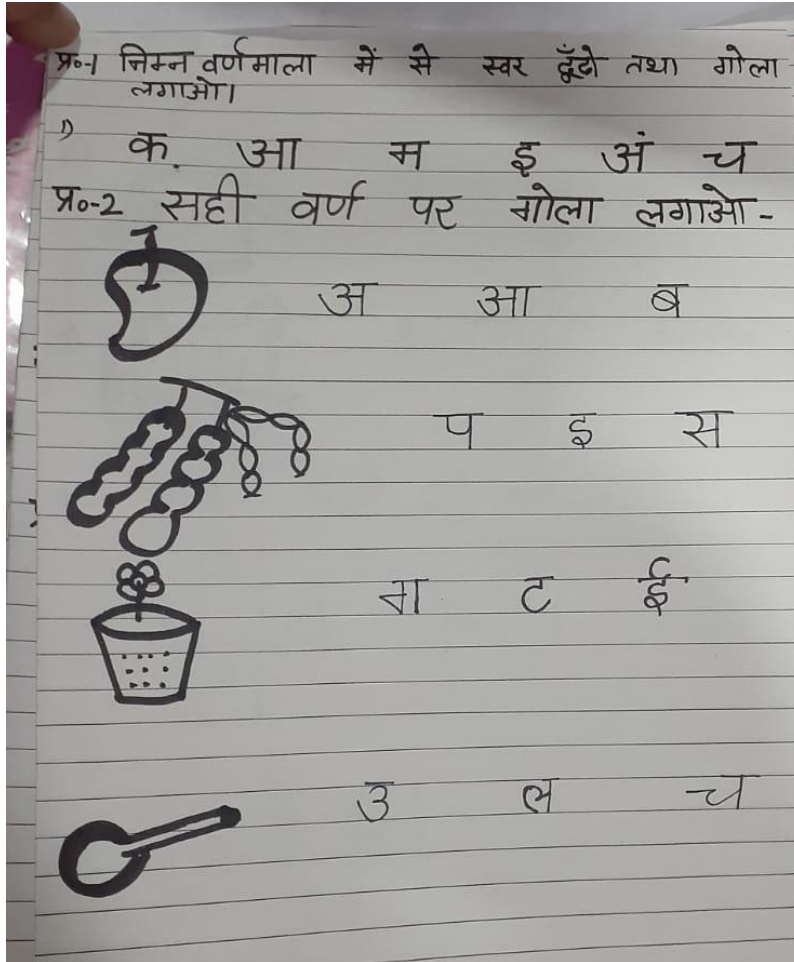 प्र०-1 निम्न वर्णमाला में से स्वर ढूँढो तथा गोला
लगाओ।
1) क. आ म इ अं च
प्र०-2 सही वर्ण पर गोला लगाओ-
अ आ ब
प इ स
ग ट ई
उ ल च